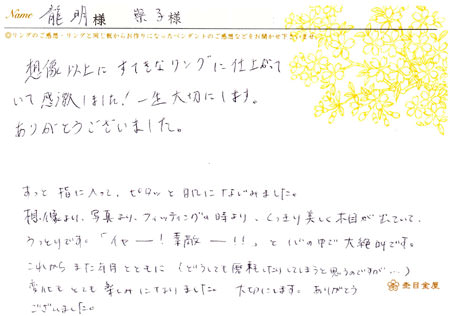 Name 龍明様 栄子様
◎リングのご感想・リングと同じ板からお作りになったペンダントのご感想などをお聞かせ下さいませ。
想像以上にすてきなリングに仕上がって
いて感激しました！一生大切にします。
ありがとうございました。
すっと指に入って、ピタッと肌になじみました。
想像より、写真より、フィッティングの時より、くっきり美しく木目が出ていて、
うっとりです。「イヤー！素敵ー！！」と心の中で大絶叫です。
これからまた年月とともに（どうしても磨耗したりしてしまうと思うのですが…）
変化もとても楽しみになりました。大切にします。ありがとう
ございました。
杢目金屋